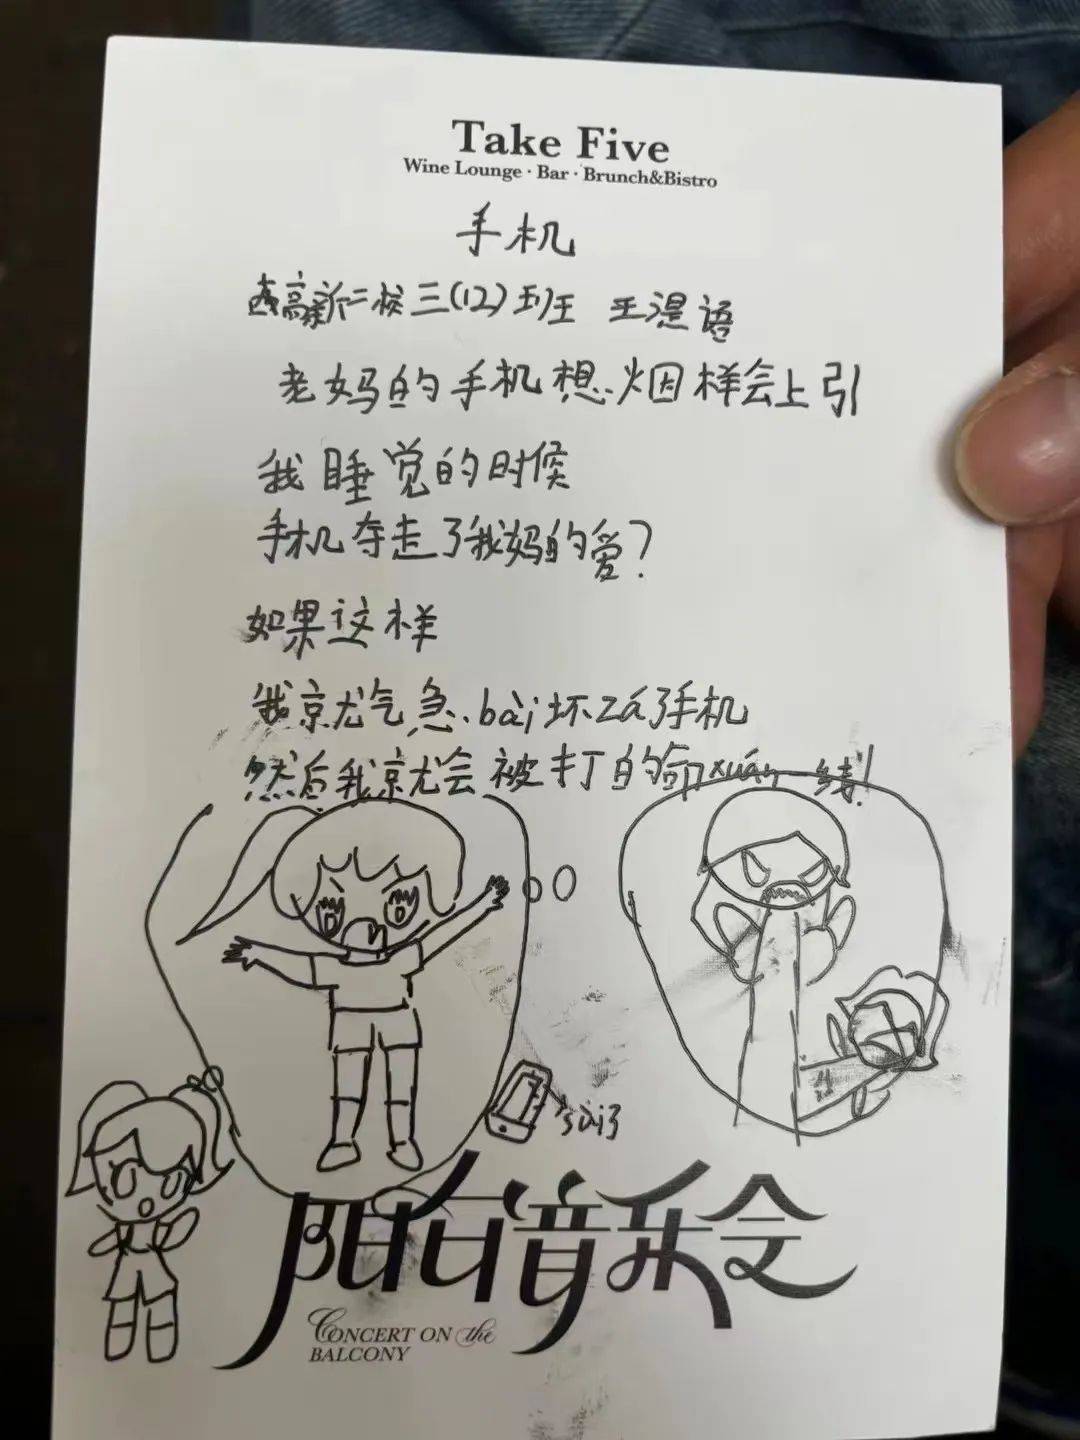 Take Five
Wine Lounge · Bar · Brunch&Bistro
手机
高新二校三(12)班 王湜语
老妈的手机想烟样会上引
我睡觉的时候
手机夺走了我妈的爱?
如果这样
我京尤气急.bài坏zá了手机
然后我京尤会被打的命xuán一线!
s
阳台音乐会
CONCERT ON the
BALCONY